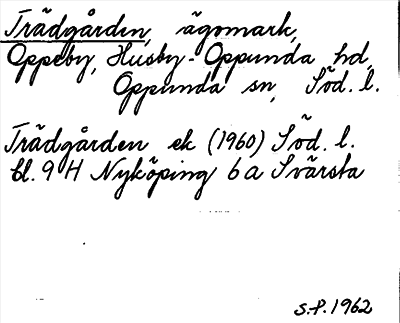 Trädgården, ägomark,
Oppeby, Husby-Oppunda hd,
Oppunda sn, Söd. l.
Trädgården ek (1960) Söd. l.
bl. 9 H Nyköping 6 a Svärsta
S.P. 1962